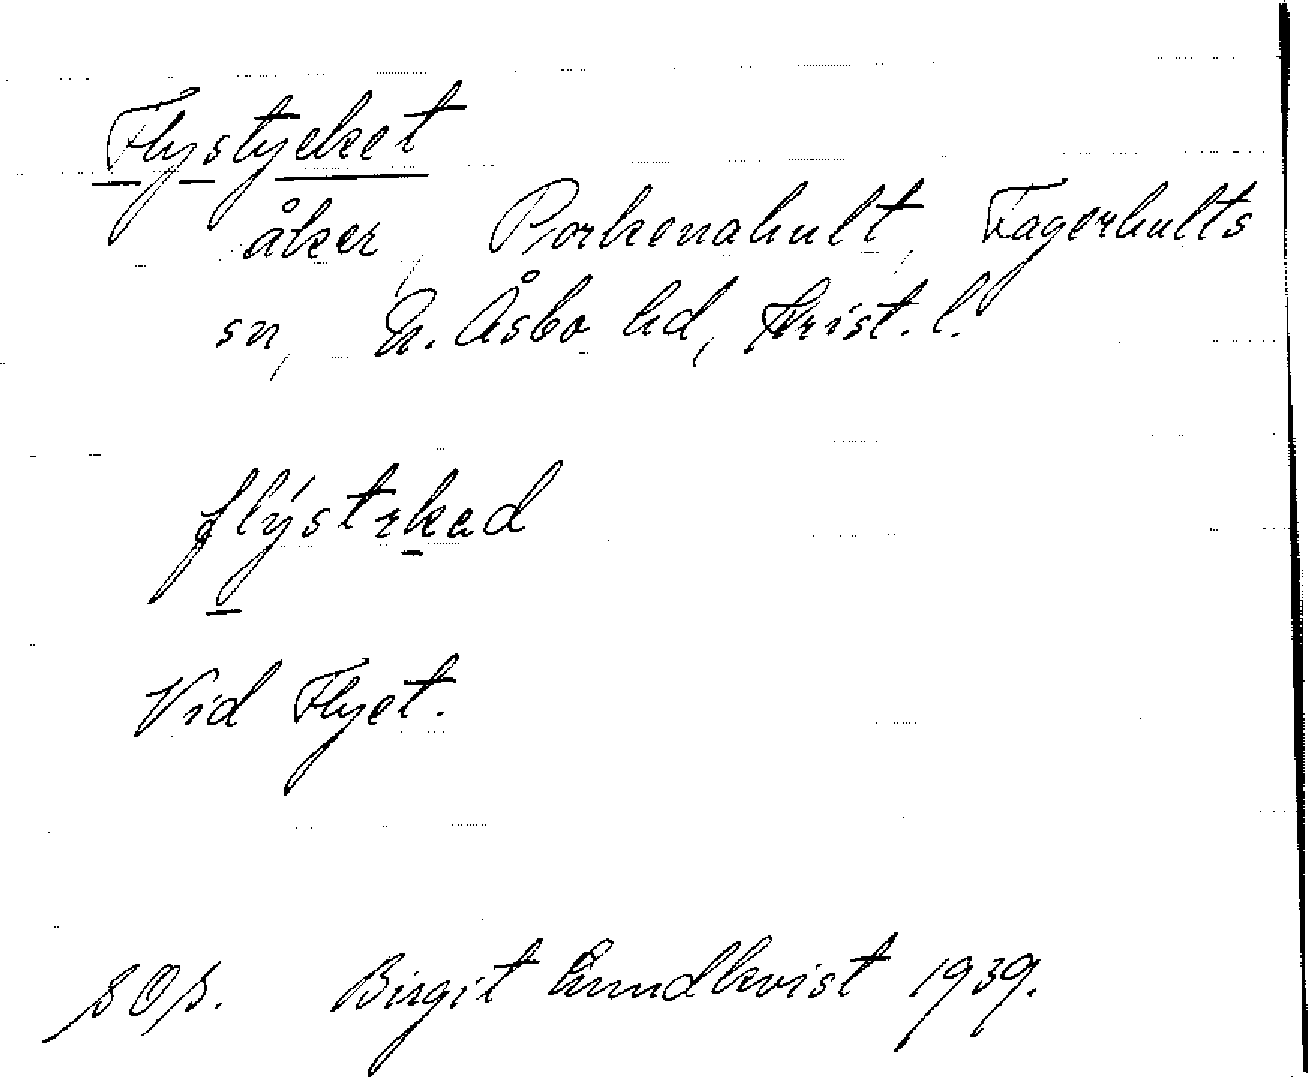 Flystycket
åker, Porkenahult, Fagerhults
sn, N. Åsbo hd, Krist. l.
flýstɩkəd
Vid Flyet.
Birgit Lundkvist 1939.